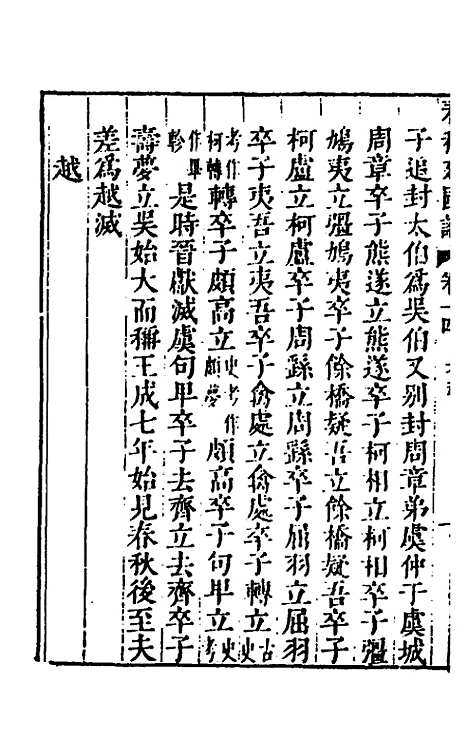 子追封太伯爲吳伯又別封周章弟虞仲于虞城
周章卒子熊遂立熊遂卒子柯相立柯相卒子彊
鳩夷立彊鳩夷卒子餘橋疑吾立餘橋疑吾卒子
柯盧立柯盧卒子周繇立周繇卒子屈羽立屈羽
卒子夷吾立夷吾卒子禽處立禽處卒子轉立古史
考作柯轉轉卒子頗高立史考作頗夢頗高卒子句卑立史考
作畢軫是時晉獻滅虞句卑卒子去齊立去齊卒子
壽夢立吳始大而稱王成七年始見春秋後至夫
差爲越滅
越